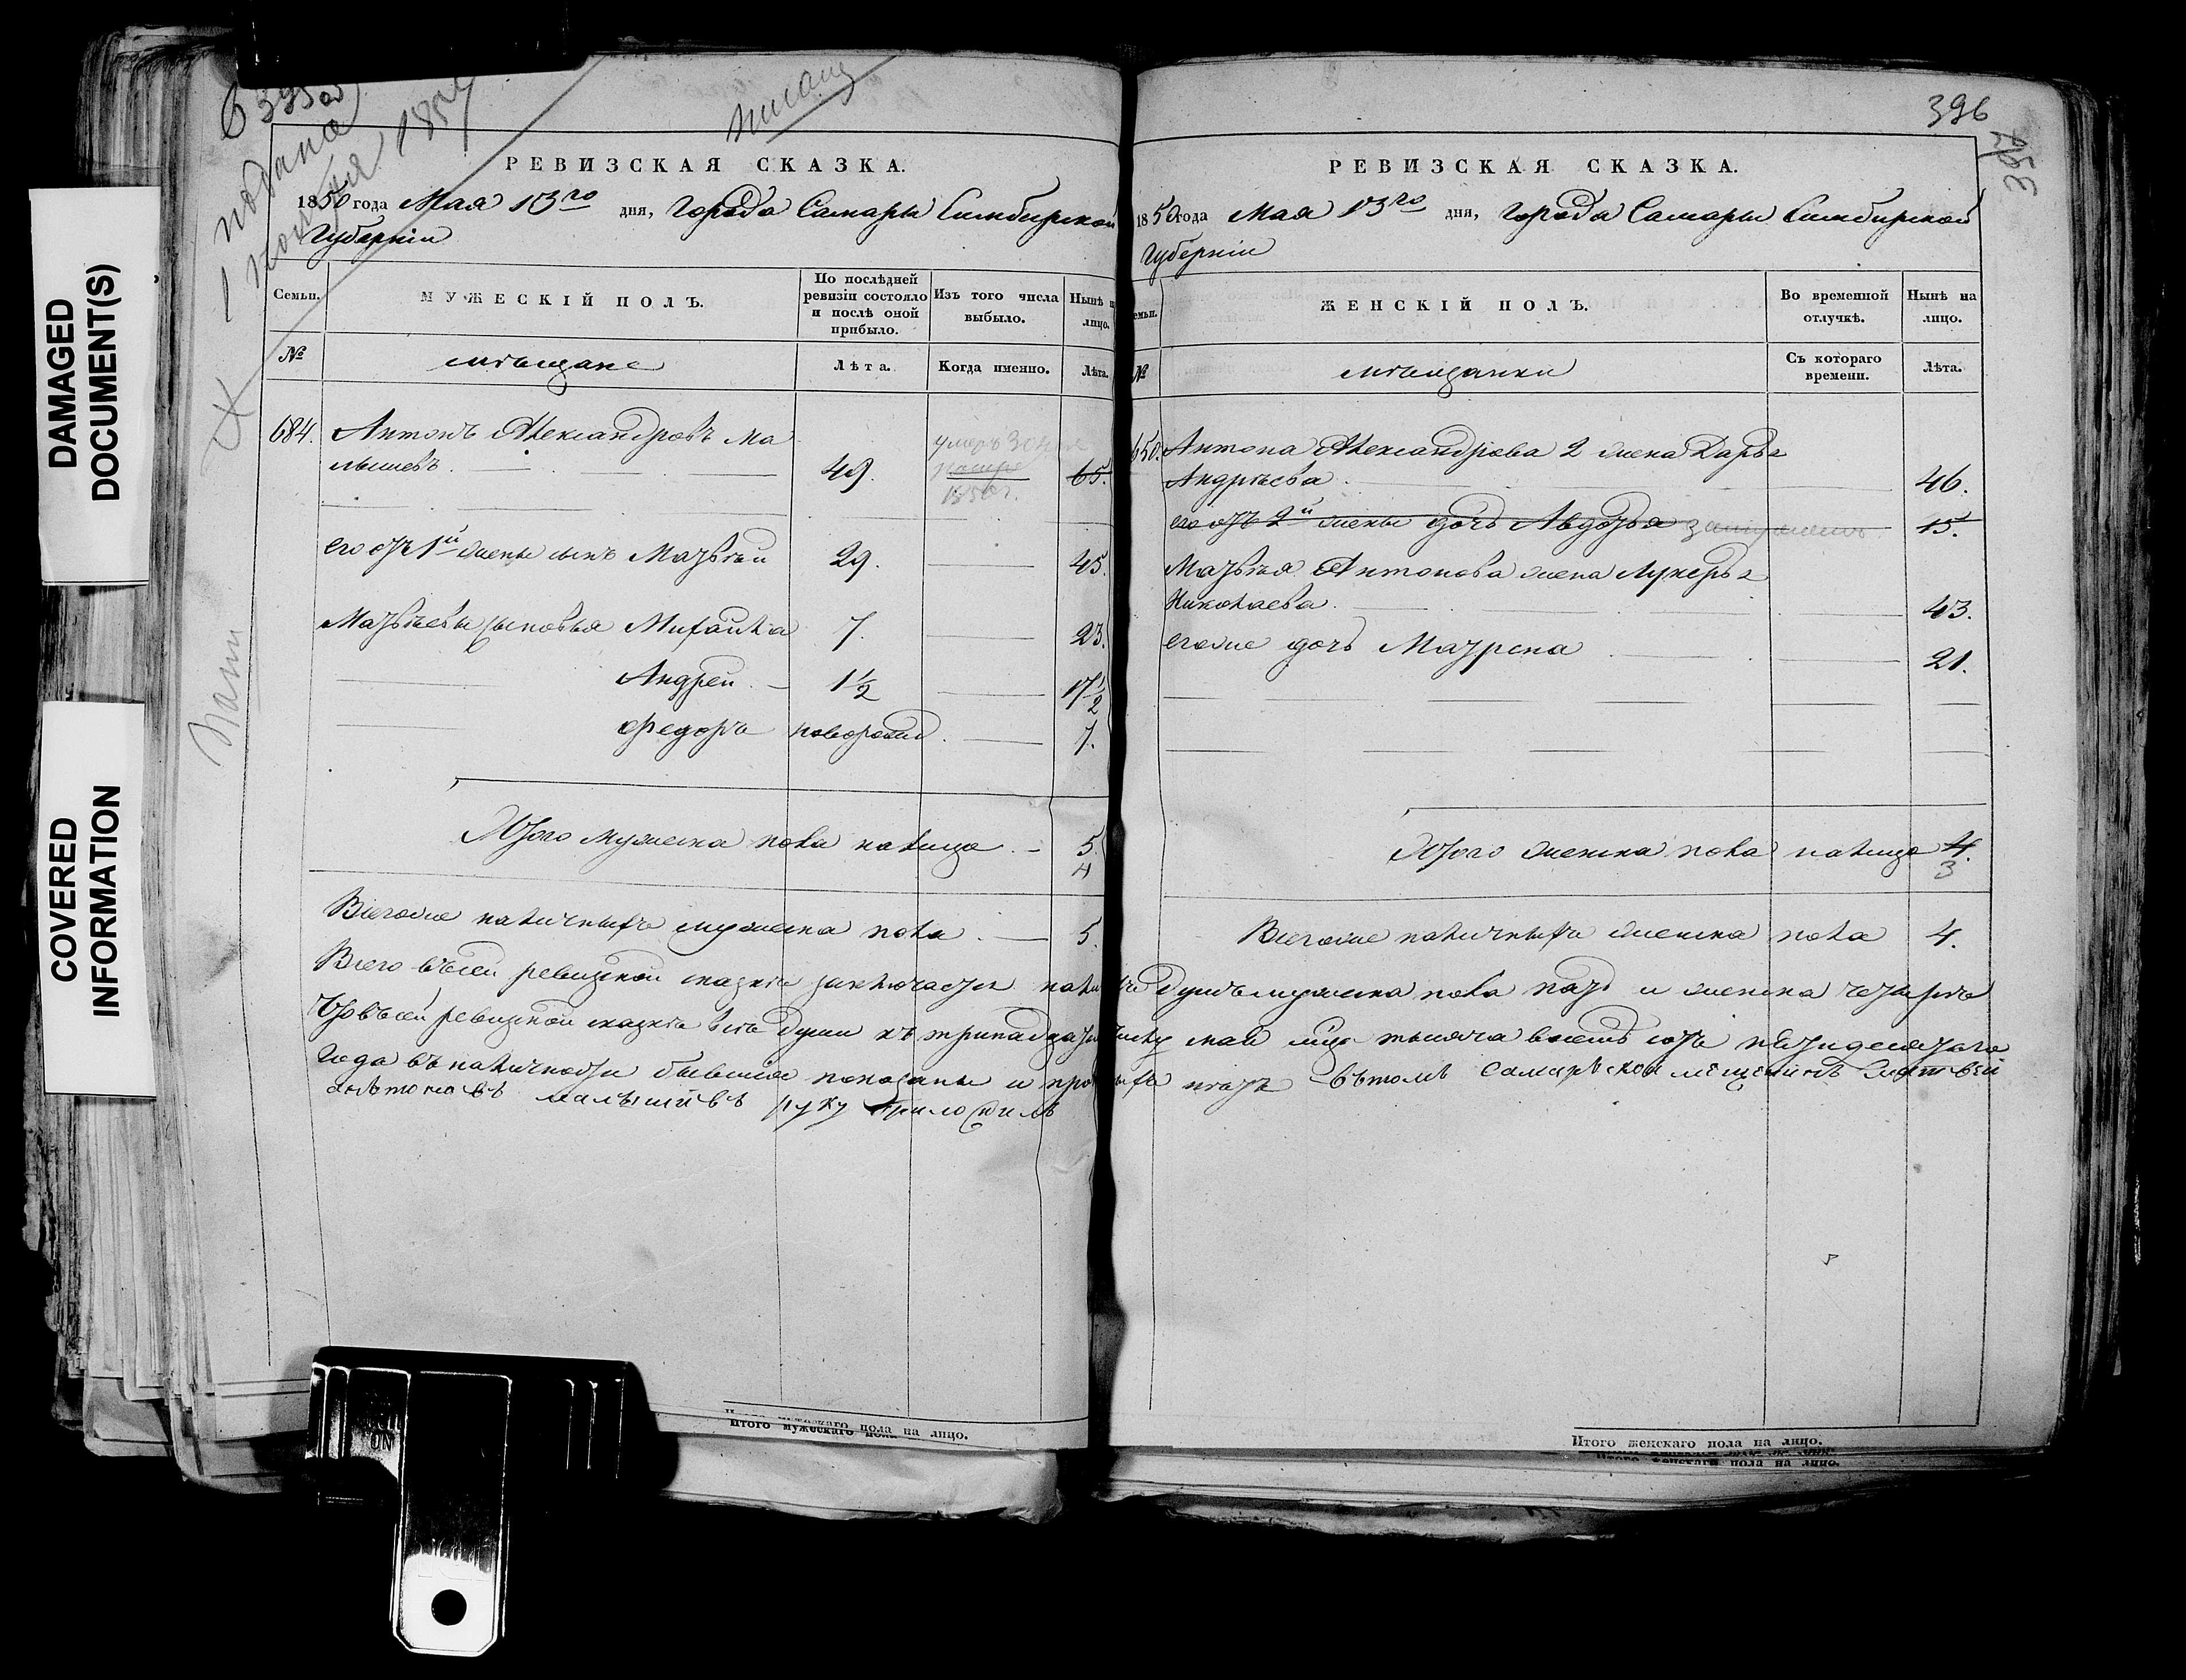 DAMAGED
DOCUMENT(S)
COVERED
INFORMATION
подана
1 июня 1850
писана
РЕВИЗСКАЯ СКАЗКА.
1850 года Мая 13го дня, Города Самары Симбирской
Губернiи
Семьи.
МУЖЕСКІЙ ПОЛЪ.
По послѣдней
ревизіи состояло
и послѣ оной
прибыло.
Изъ того числа
выбыло.
Нынѣ н
лицо.
№
мѣщане
Лѣта.
Когда именно.
Лѣта.
684. Антонъ Александровъ Ма
лышевъ. 49. 65.
умеръ 30
1850 г.
его отъ 1й жены сынъ Матвѣй 29. 45.
Матвѣевы сыновья Михайла 7. 23.
Андрей 1½ 17½
Федоръ новорожд. 7.
Итого мужеска пола налицо 5.
4
Всегоже наличныхъ мужеска пола 5.
396
395
РЕВИЗСКАЯ СКАЗКА.
1850 года Мая 13го дня, Города Самары Симбирской
Губернiи
емьи.
ЖЕНСКІЙ ПОЛЪ.
Во временной
отлучкѣ.
Нынѣ на
лицо.
№
мѣщанки
Съ котораго
времени.
Лѣта.
650. Антона Александрова 2 жена Дарья
Андрѣева 46.
его отъ 2й жены дочь Авдотья замужемъ 15.
Матвѣя Антонова жена Лукерья
Николаева 43.
его же дочь Матрена 21.
Итого женска пола налицо 4.
3
Всегоже наличныхъ женска пола 4.
Всего въсей ревизкой сказкѣ заключается наличныхъ душъ мужеска пола пять и женска четыре
Чтовъсей ревизкой сказкѣ всѣ души къ тринадцатому числу мая мца тысяча восемь сотъ пятидесятаго
года въ наличности бывшiя показаны и прописныхъ нѣтъ вътомъ самарской мещенинъ матвей
антоновъ малышивъ руку приложилъ
Итого мужескаго пола на лицо.
Итого женскаго пола на лицо.
Итого женскаго пола на лицо.